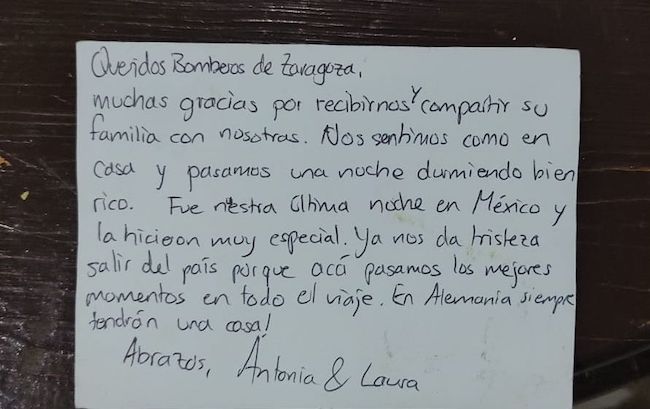 Queridos Bomberos de Zaragoza,
muchas gracias por recibirnos y compartir su
familia con nosotras. Nos sentimos como en
casa y pasamos una noche durmiendo bien
rico. Fue nestra última noche en México y
la hicieon muy especial. Ya nos da tristeza
salir del país porque acá pasamos los mejores
momentos en todo el viaje. En Alemania siempre
tendrán una casa!
Abrazos, Antonia & Laura